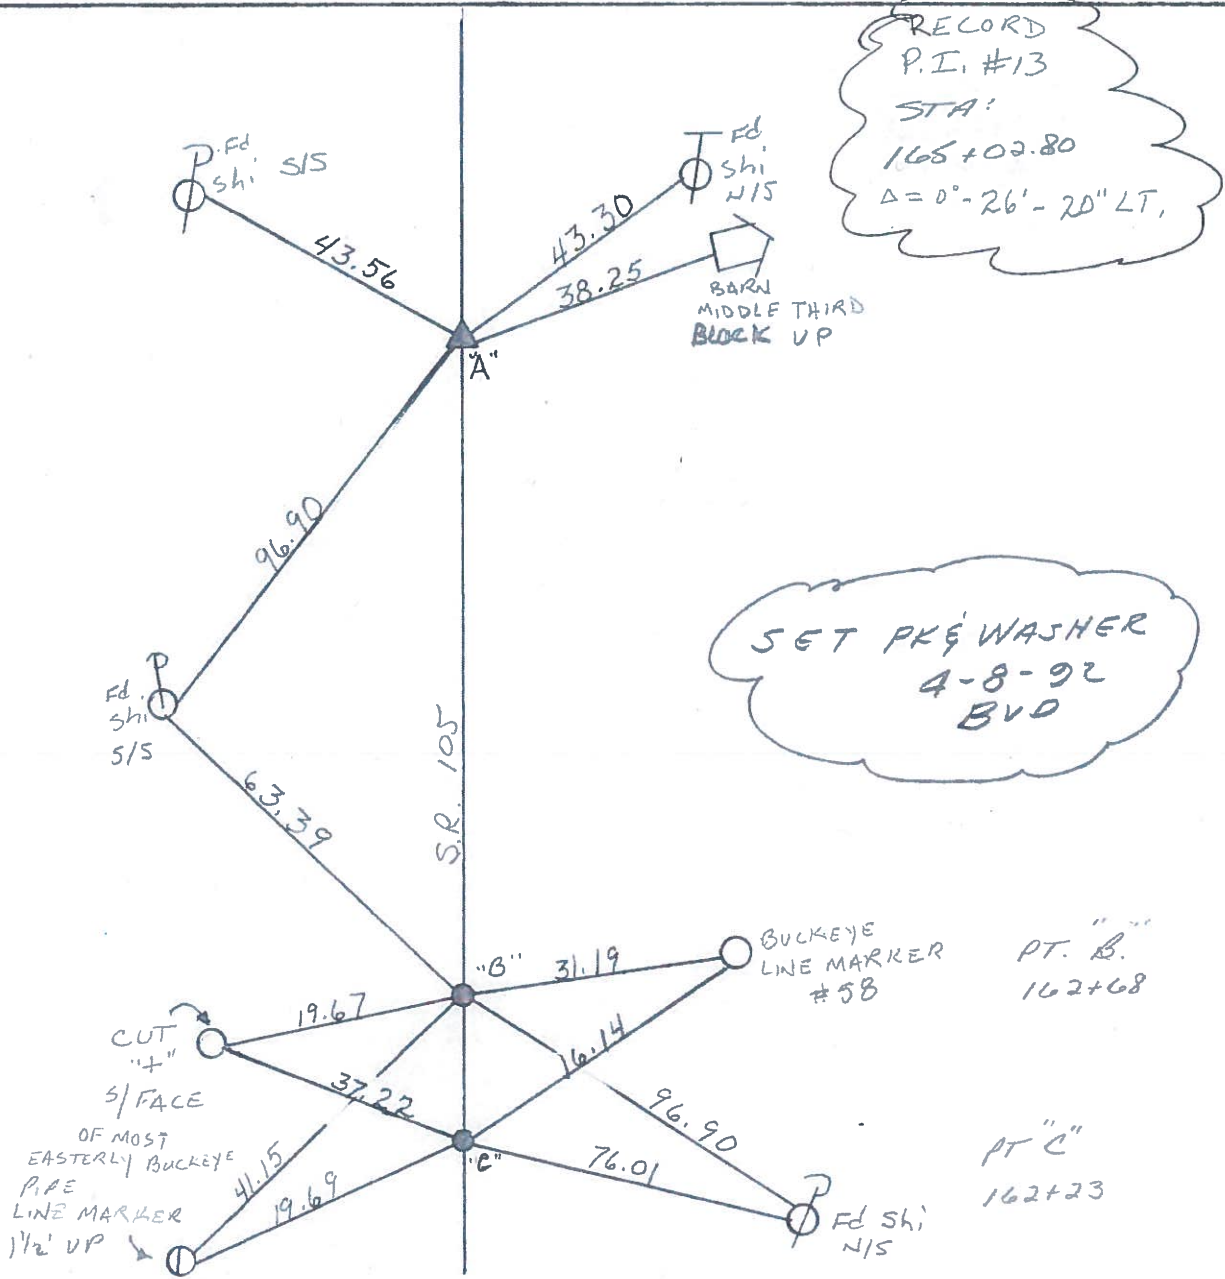 RECORD
P.I. #13
STA:
165+02.80
Δ = 0°-26'-20" LT.
P. Fd
Shi S/S
T Fd
Shi
N/S
43.56
43.30
38.25
BARN
MIDDLE THIRD
BLOCK UP
"A"
96.90
SET PK & WASHER
4-8-92
BVD
P
Fd.
Shi
S/S
S.R. 105
63.39
"B"
31.19
BUCKEYE
LINE MARKER
#58
PT. "B."
162+68
19.67
CUT
"+"
S/FACE
OF MOST
EASTERLY BUCKEYE
PIPE
LINE MARKER
1 1/2' UP
37.22
16.14
96.90
"C"
76.01
41.15
19.69
P
Fd Shi
N/S
PT "C"
162+23